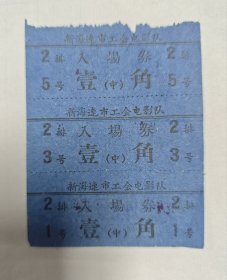 新海连市工会电影队
2排 入場券 2排
5号 壹(中)角 5号
新海连市工会电影队
2排 入場券 2排
3号 壹(中)角 3号
新海连市工会电影队
2排 入場券 2排
1号 壹(中)角 1号